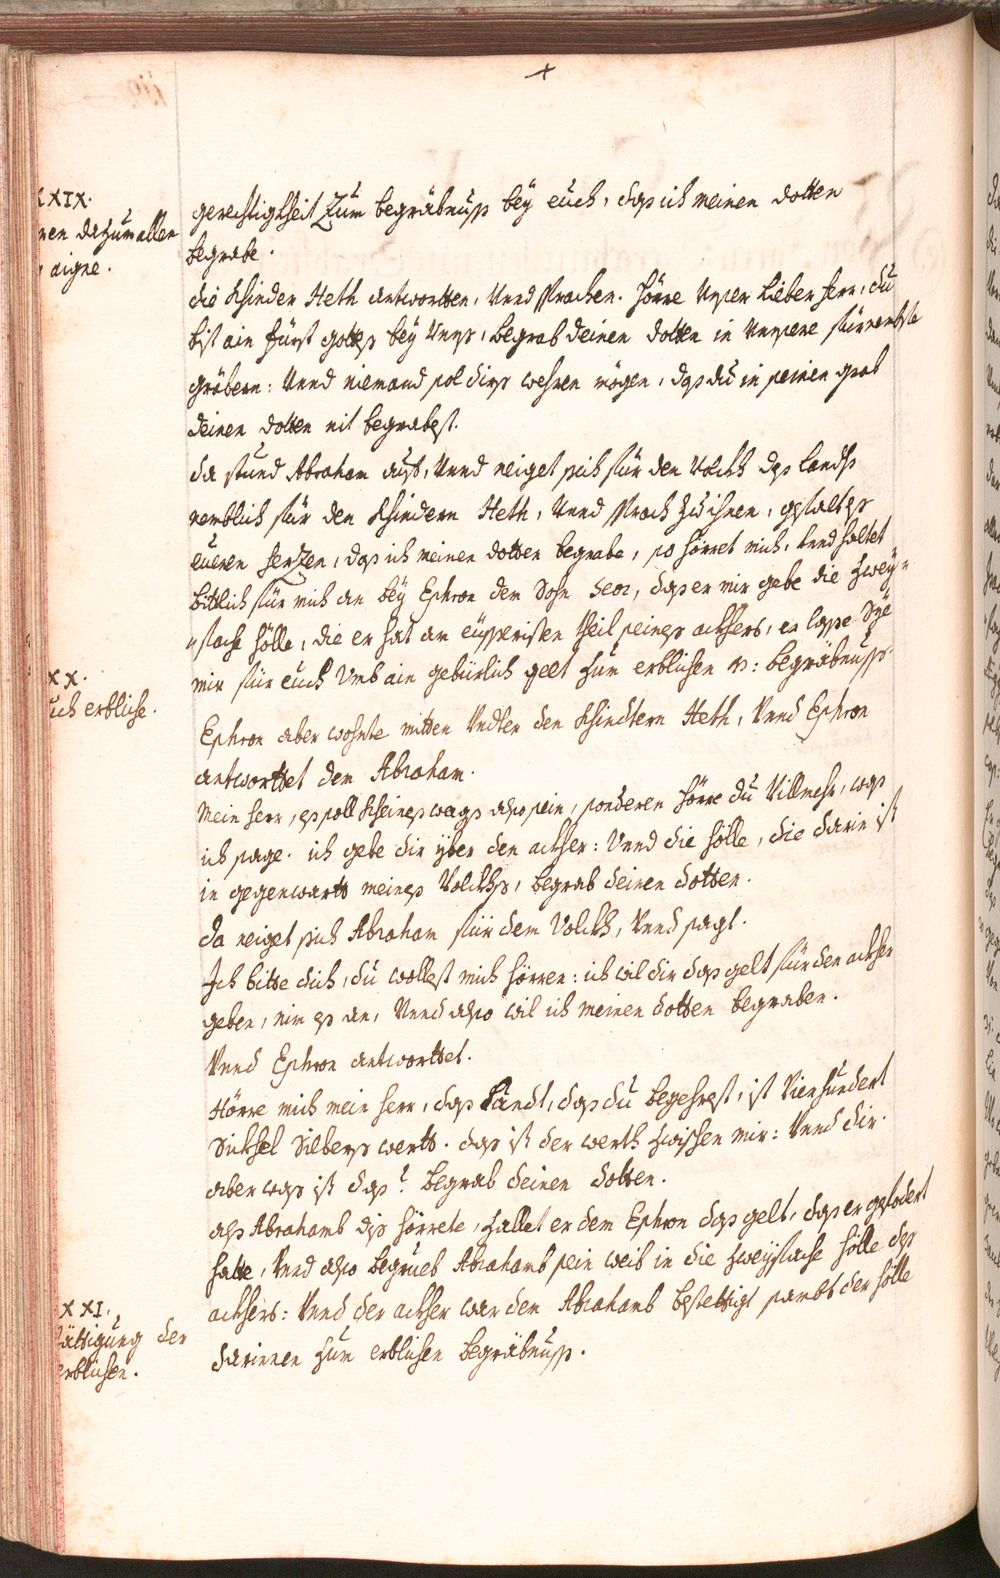 +
XXIX.
nen dazumallen
aigne.
gerechtigkheit Zum begräbnuß bey euch, daß ich meinen dotten
begrabe.
die Khinder Heth antwortten, Vnnd sprachen. Hörre Vnser lieber herr, du
bist ain fürst gottes bey Vnns, begrab deinen dotten in Vnnsere fürnembste
gräbern: Vnnd niemand sol dirs wehren mögen, daß du in seinen grab
deinen dotten nit begrabest.
da stund Abraham auf, Vnnd neiget sich für den Volckh deß landts
nemblich für den Khindern Heth, Vnnd sprach zu ihnen, gefalt es
eueren herzen, daß ich meinen dotten begrabe, so hörret mich, Vnnd haltet
bittlich für mich an bey Ephron dem Sohn Seor, daß er mir gebe die zwey-
fache hölle, die er hat am eusseristen theil seines ackhers, er lasse Sye
mir für euch Vmb ain gebürlich gelt zum erblichen begräbnuß.
XX.
uch erbliche.
Ephron aber wohnte mitten Vndter den Khindtern Heth, Vnnd Ephron
antworttet dem Abraham.
Mein herr, es soll Kheines wegs also sein, sonderen hörre du Villmehr, was
ich sage. ich gebe dir yber den ackher: Vnnd die hölle, die darin ist
in gegenwartt meines Volckhs, begrab deinen dotten.
da neiget sich Abraham für dem Volckh, Vnnd sagt.
Ich bitte dich, du wollest mich hörren: ich wil dir das gelt für den ackher
geben, nim es an, Vnnd also wil ich meinen dotten begraben.
Vnnd Ephron antworttet.
Hörre mich mein herr, das Landt, das du begehrest, ist Vierhundert
Sickhel Silbers wertt. das ist der werth zwischen mir: Vnnd dir.
aber was ist das? begrab deinen dotten.
alß Abrahamb diß hörrete, zallet er dem Ephron das gelt, das er gefodert
hatte, Vnnd also begrueb Abrahamb sein weib in die zweyfache hölle des
ackhers: Vnnd der ackher war dem Abrahamb bestettigt sambt der hölle
darinnen zum erblichen begräbnuß.
XXI.
ättigung der
erblichen.